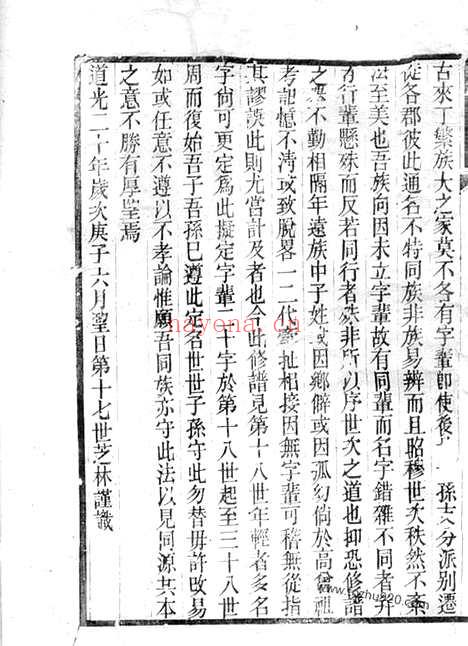 古來丁繁族大之家莫不各有字輩卽使後 孫 分派別遷
從各郡彼此通名不特同族非族易辨而且昭穆世次秩然不紊
法至美也吾族向因未立字輩故有同輩而名字錯雜不同者并
有行輩懸殊而又若同行者殊非所以序世次之道也抑恐修譜
之 不勤相隔年遠族中子姓或因鄉僻或因孤幼倘於高曾祖
考記憶不淸或致脫畧一二代牽扯相接因無字輩可稽無從指
其謬誤此則尤當計及者也今此修譜見第十八世年輕者多名
字尙可更定爲此擬定字輩二十字於第十八世起至三十八世
周而復始吾子吾孫巳遵此定名世世子孫守此勿替毋許改易
如或任意不遵以不孝論惟願吾同族亦守此法以見同源共本
之意不勝有厚望焉
道光二十年歲次庚子六月望日第十七世芝林謹識
hayena.cn